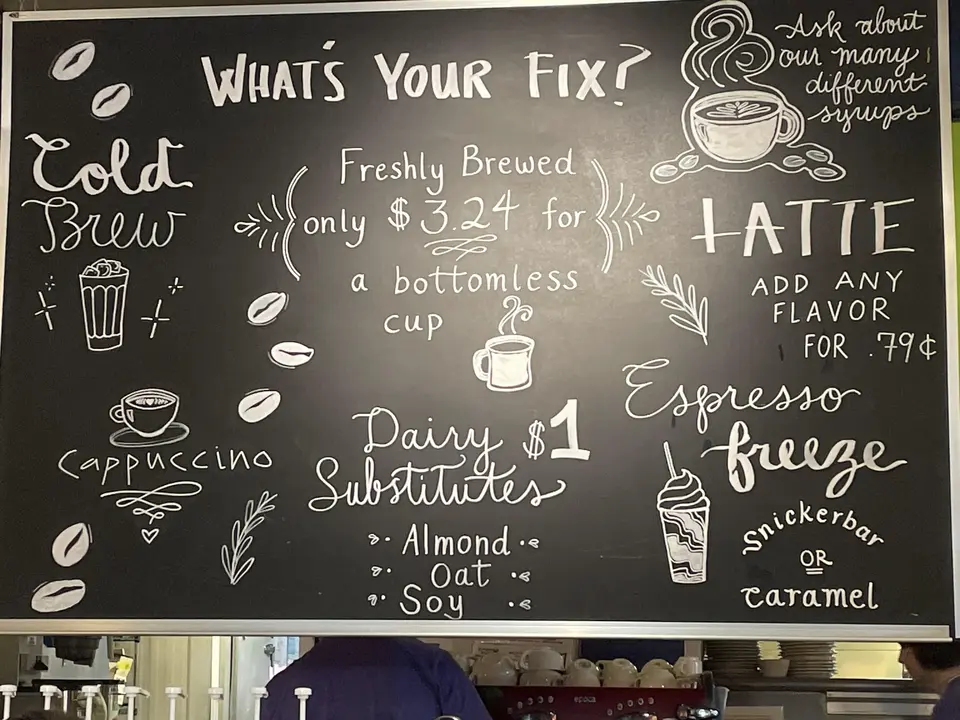 WHAT'S YOUR FIX?
Ask about
our many
different
syrups
Cold
Brew
Freshly Brewed
only $3.24 for
a bottomless
cup
LATTE
ADD ANY
FLAVOR
FOR .79¢
Cappuccino
Dairy $1
Substitutes
Almond
Oat
Soy
Espresso
freeze
Snickerbar
OR
Caramel
epoca